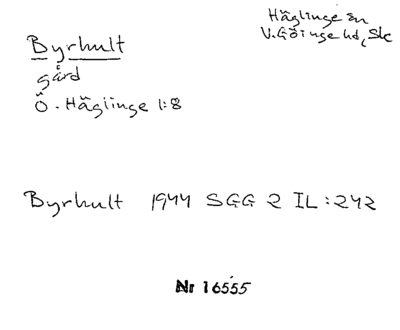 Byrhult
gård
Ö. Häglinge 1:8
Häglinge sn
V. Göinge hd, Sk
Byrhult 1944 SGG 2 IL:242
Nr 16555